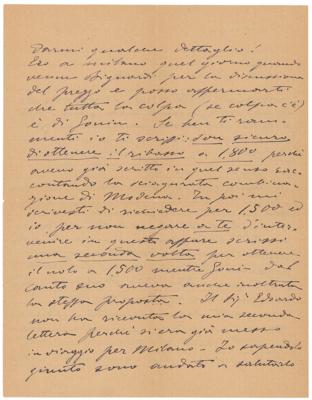 Darmi qualche dettaglio!
Ero a Milano quel giorno quando
venne Signardi per la dimissione
del prezzo e posso affermarti
che tutta la colpa (se colpa c'è)
è di Gonin. Se ben ti ram-
menti io ti scrissi: son sicuro
di ottenere il ribasso a 1,800 perchè
avevo già scritto in quel senso rac-
contando la sciagurata combina-
zione di Modena. Tu poi mi
scrivesti di richiedere per 1,500 ed
io, per non negare a te d'inter-
venire in questo affare scrissi
una seconda volta per ottenere
il nolo a 1500 mentre Gonin dal
canto suo aveva anche inoltrata
la stessa proposta. Il Sig. Edoardo
non ha ricevuta la mia seconda
lettera perchè si era già messo
in viaggio per Milano. Io sapendolo
giunto sono andato a salutarlo